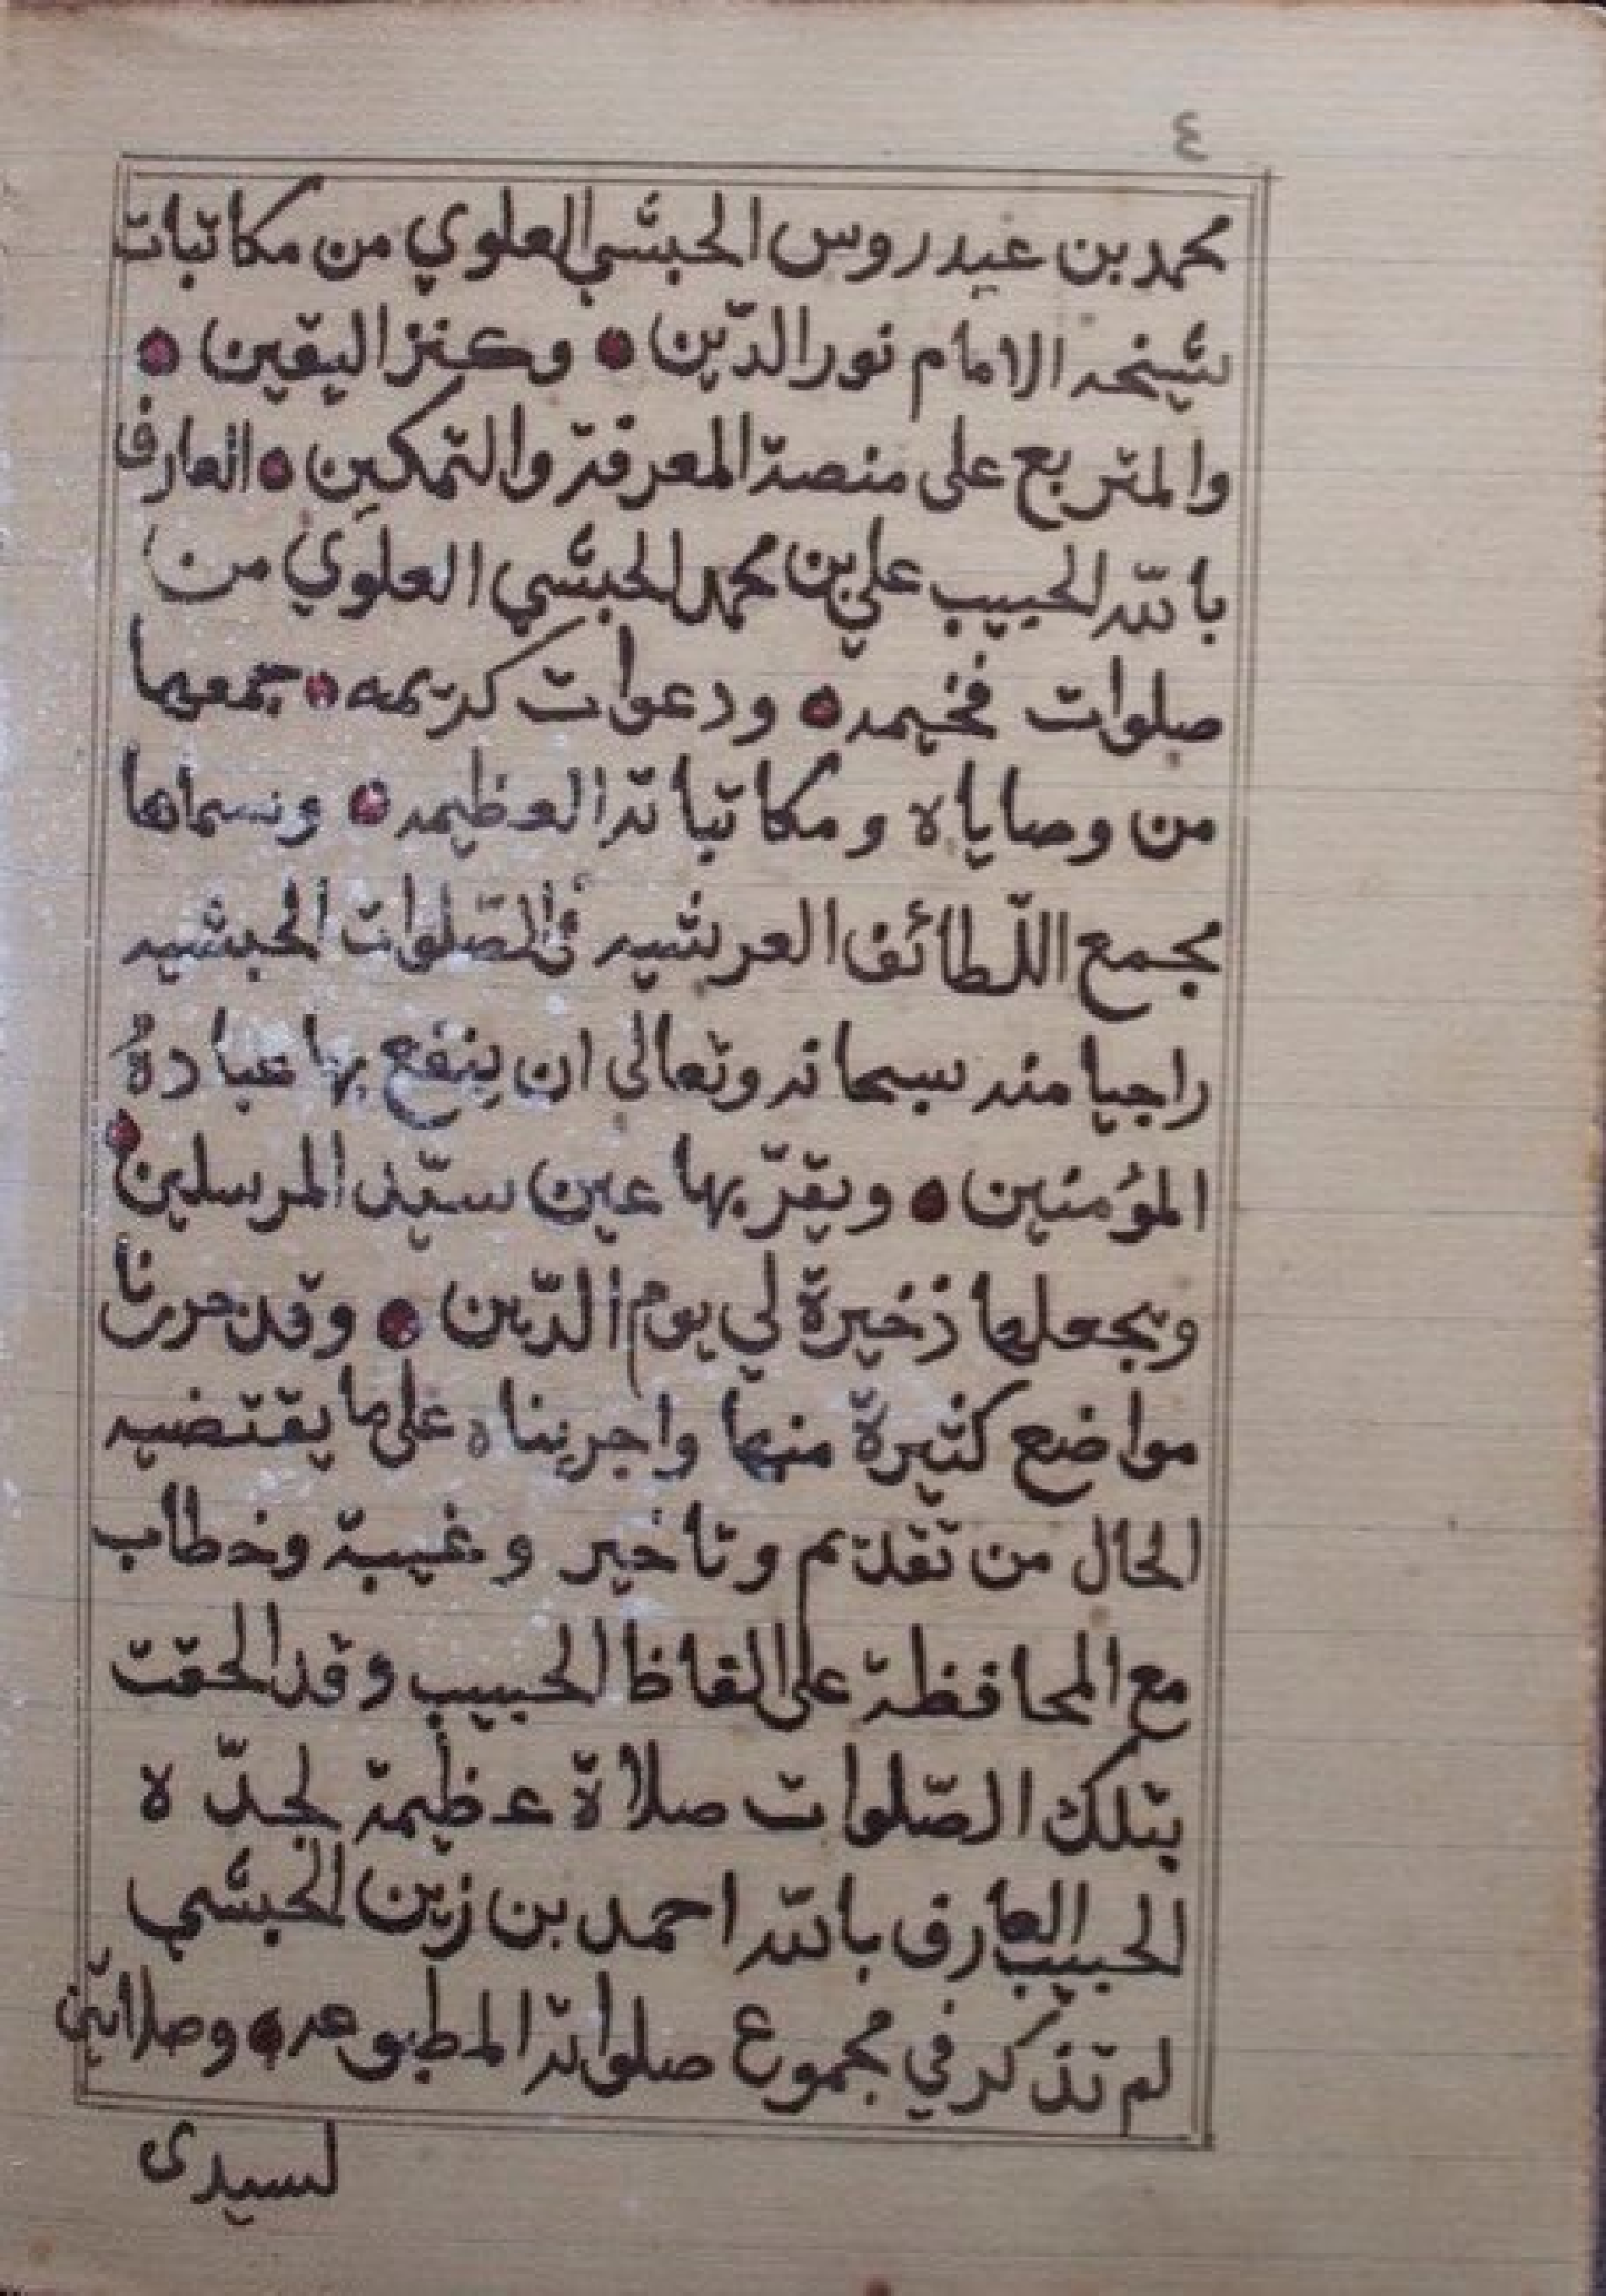 ٤
محمد بن عيدروس الحبشي العلوي من مكاتبات
شيخه الامام نور الدّين • وكنز اليقين •
والمتربع على منصة المعرفة والتمكين • العارف
بالله الحبيب علي بن محمد الحبشي العلوي من
صلوات فخيمه • ودعوات كريمه • جمعها
من وصاياه ومكاتباته العظيمه • وسماها
مجمع اللّطائف العرشيه في الصّلوات الحبشيه
راجيا منه سبحانه وتعالى ان ينفع بها عبادهُ
المؤمنين • ويقرّ بها عين سيّد المرسلين •
ويجعلها ذخيرة لي يوم الدّين • وقد حررنا
مواضع كثيرة منها واجريناه على ما يقتضيه
الحال من تقديم وتاخير وغيبة وخطاب
مع المحافظة على الفاظ الحبيب وقد الحقت
بتلك الصّلوات صلاة عظيمة لجدّه
الحبيب العارف بالله احمد بن زين الحبشي
لم تذكر في مجموع صلواته المطبوعه • وصلاتين
لسيدى